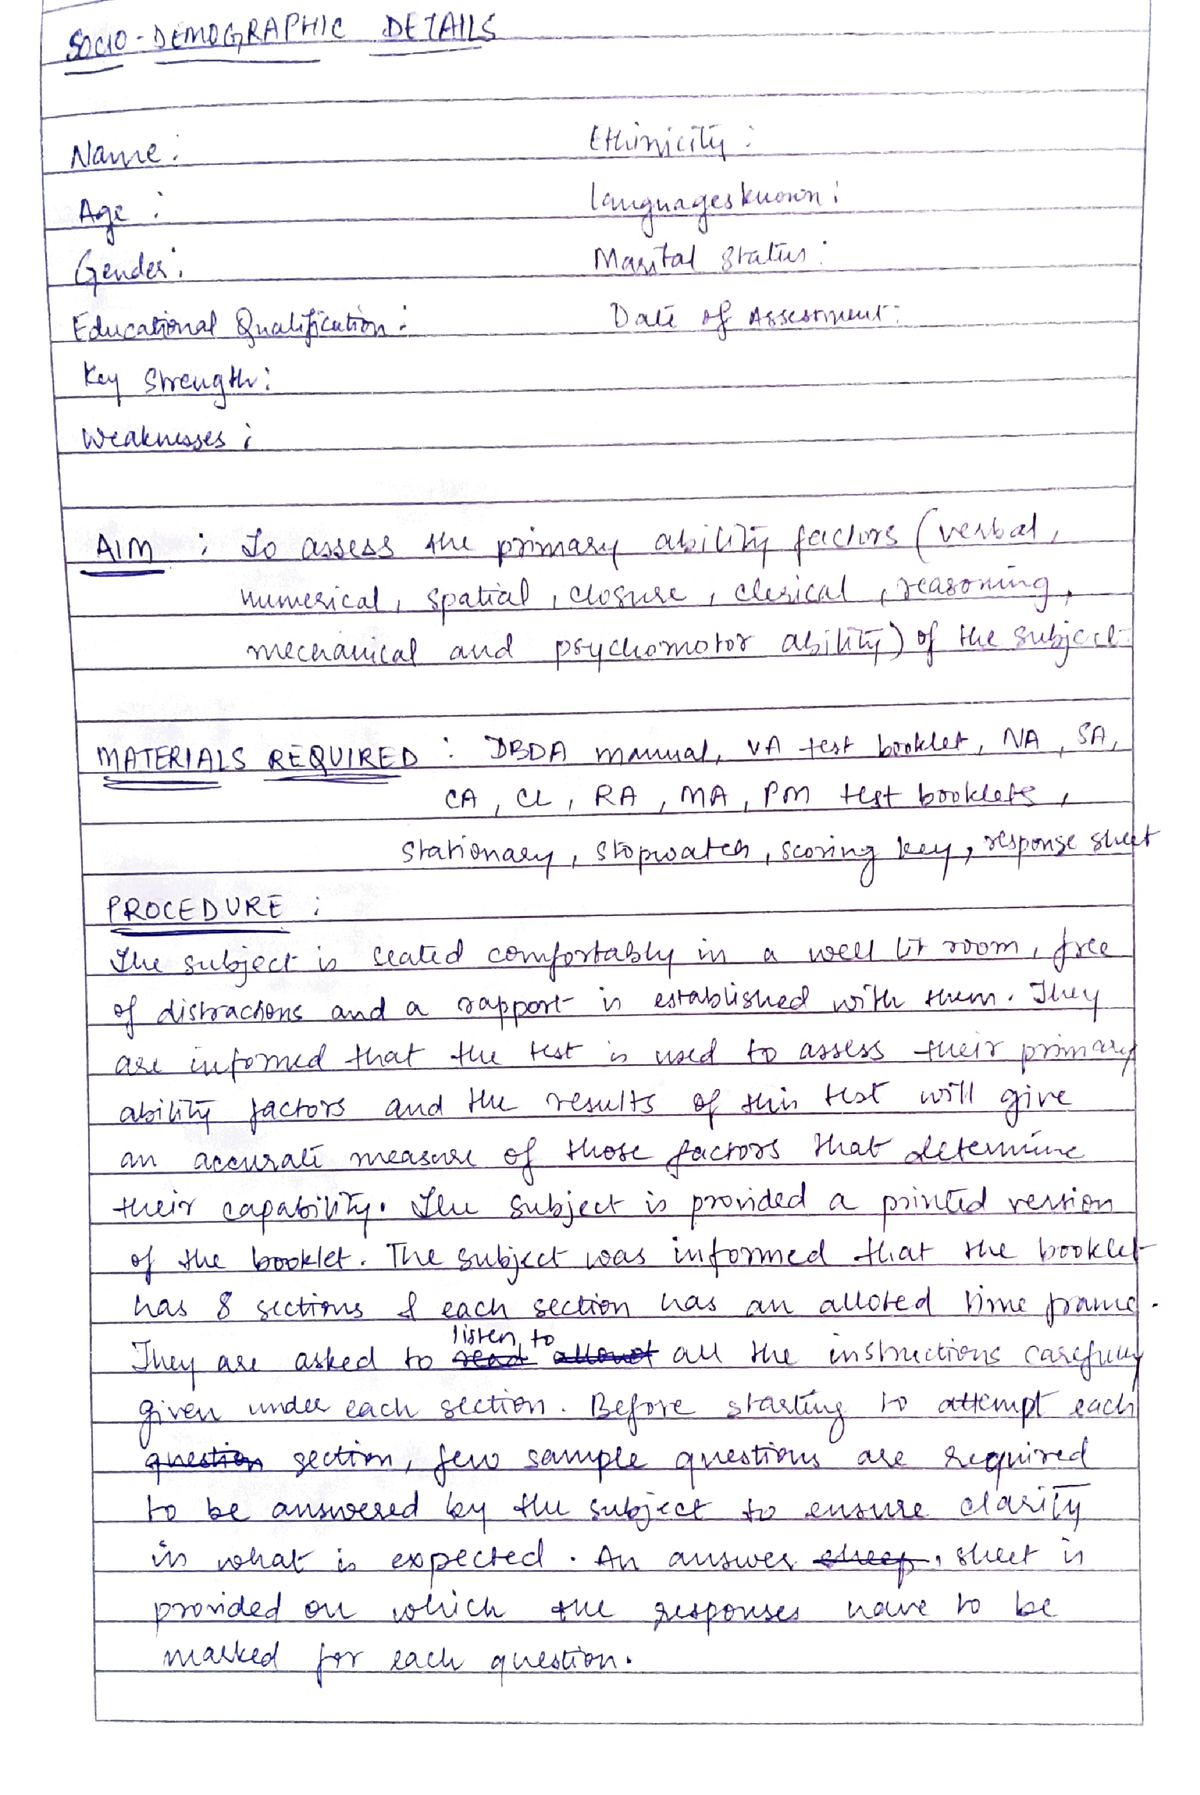 SOCIO-DEMOGRAPHIC DETAILS
Name: Ethinicity:
Age: languages known:
Gender: Marital Status:
Educational Qualification: Date of Assessment:
Key Strength:
Weaknesses:
AIM : To assess the primary ability factors (verbal,
numerical, spatial, closure, clerical, reasoning,
mechanical and psychomotor ability) of the subject
MATERIALS REQUIRED : DBDA manual, VA test booklet, NA, SA,
CA, CL, RA, MA, PM test booklets,
stationary, stopwatch, scoring key, response sheet
PROCEDURE :
The subject is seated comfortably in a well lit room, free
of distractions and a rapport is established with them. They
are informed that the test is used to assess their primary
ability factors and the results of this test will give
an accurate measure of those factors that determine
their capability. The subject is provided a printed version
of the booklet. The subject was informed that the booklet
has 8 sections & each section has an alloted time frame.
They are asked to listen to all the instructions carefully
given under each section. Before starting to attempt each
question section, few sample questions are required
to be answered by the subject to ensure clarity
in what is expected. An answer sheet is
provided on which the responses have to be
marked for each question.